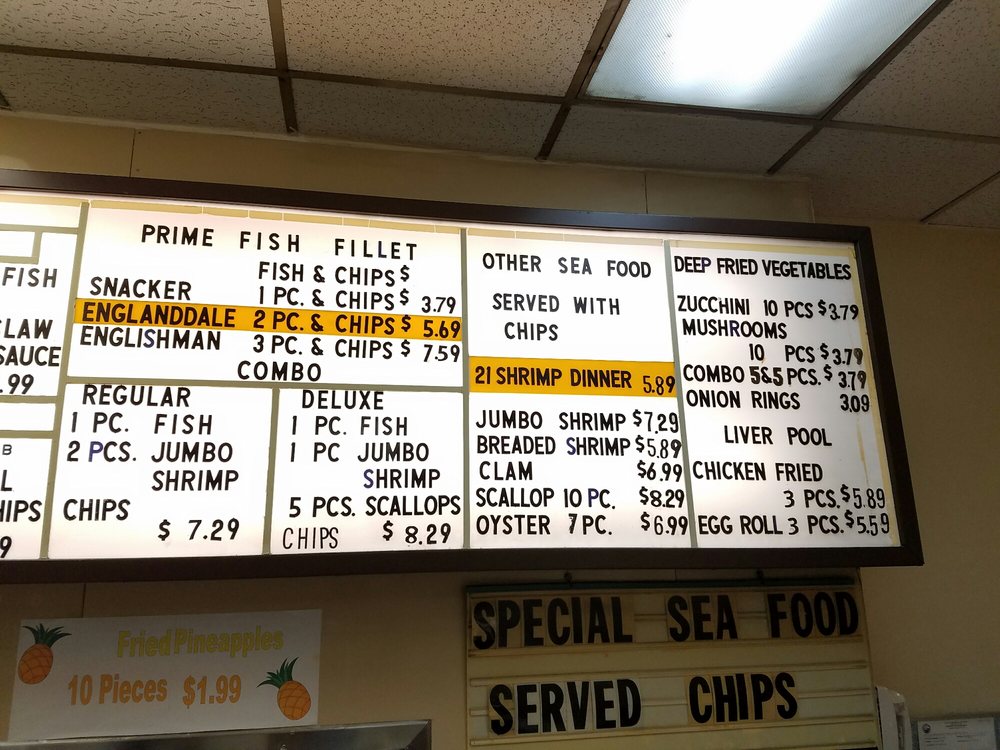 FISH
LAW
SAUCE
.99
B
L
HIPS
9
PRIME FISH FILLET
FISH & CHIPS $
SNACKER 1 PC. & CHIPS $ 3.79
ENGLANDDALE 2 PC. & CHIPS $ 5.69
ENGLISHMAN 3 PC. & CHIPS $ 7.59
COMBO
REGULAR
1 PC. FISH
2 PCS. JUMBO
SHRIMP
CHIPS
$ 7.29
DELUXE
1 PC. FISH
1 PC JUMBO
SHRIMP
5 PCS. SCALLOPS
CHIPS $ 8.29
OTHER SEA FOOD
SERVED WITH
CHIPS
21 SHRIMP DINNER 5.89
JUMBO SHRIMP $7.29
BREADED SHRIMP $5.89
CLAM $6.99
SCALLOP 10 PC. $8.29
OYSTER 7 PC. $6.99
DEEP FRIED VEGETABLES
ZUCCHINI 10 PCS $3.79
MUSHROOMS
10 PCS $3.79
COMBO 5&5 PCS. $3.79
ONION RINGS 3.09
LIVER POOL
CHICKEN FRIED
3 PCS. $5.89
EGG ROLL 3 PCS. $5.59
Fried Pineapples
10 Pieces $1.99
SPECIAL SEA FOOD
SERVED CHIPS